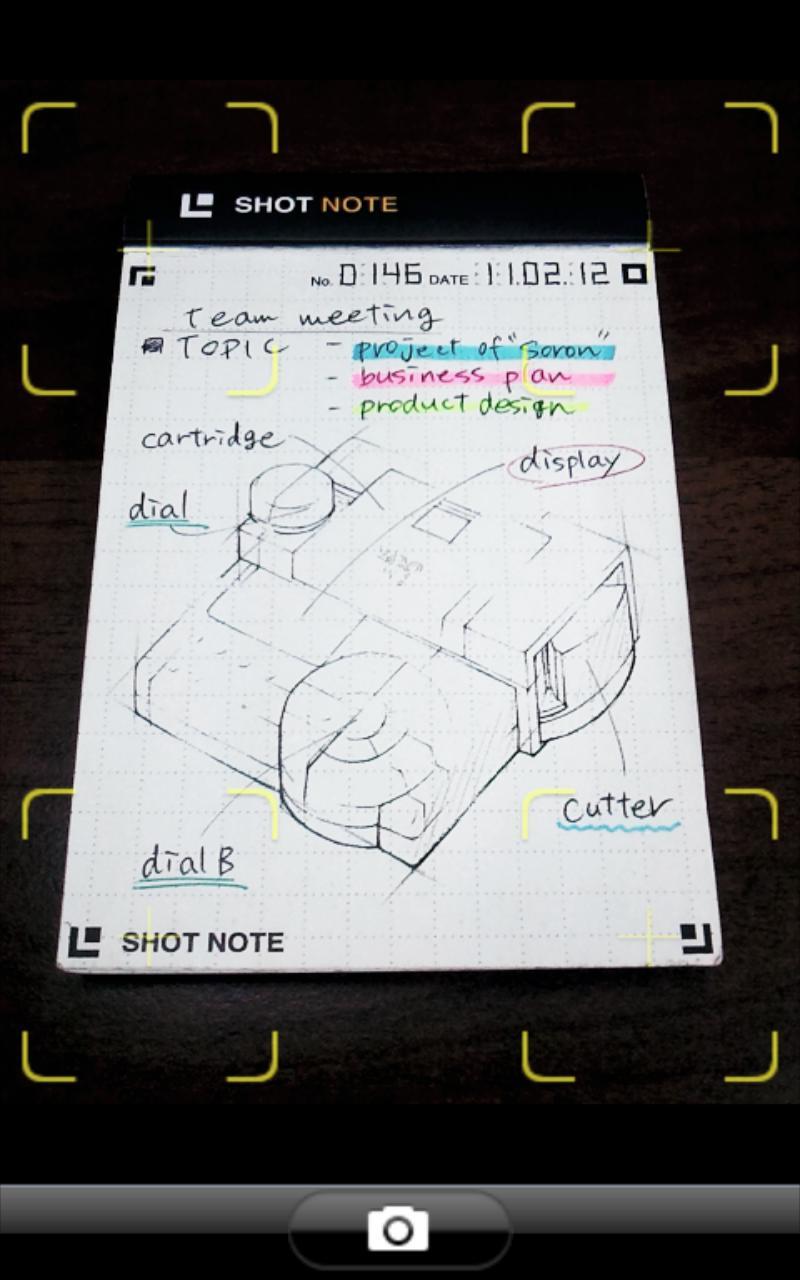 SHOT NOTE
No. 0146 DATE 11.02.12
Team meeting
TOPIC - project of "Soron"
- business plan
- product design
cartridge
display
dial
cutter
dial B
SHOT NOTE